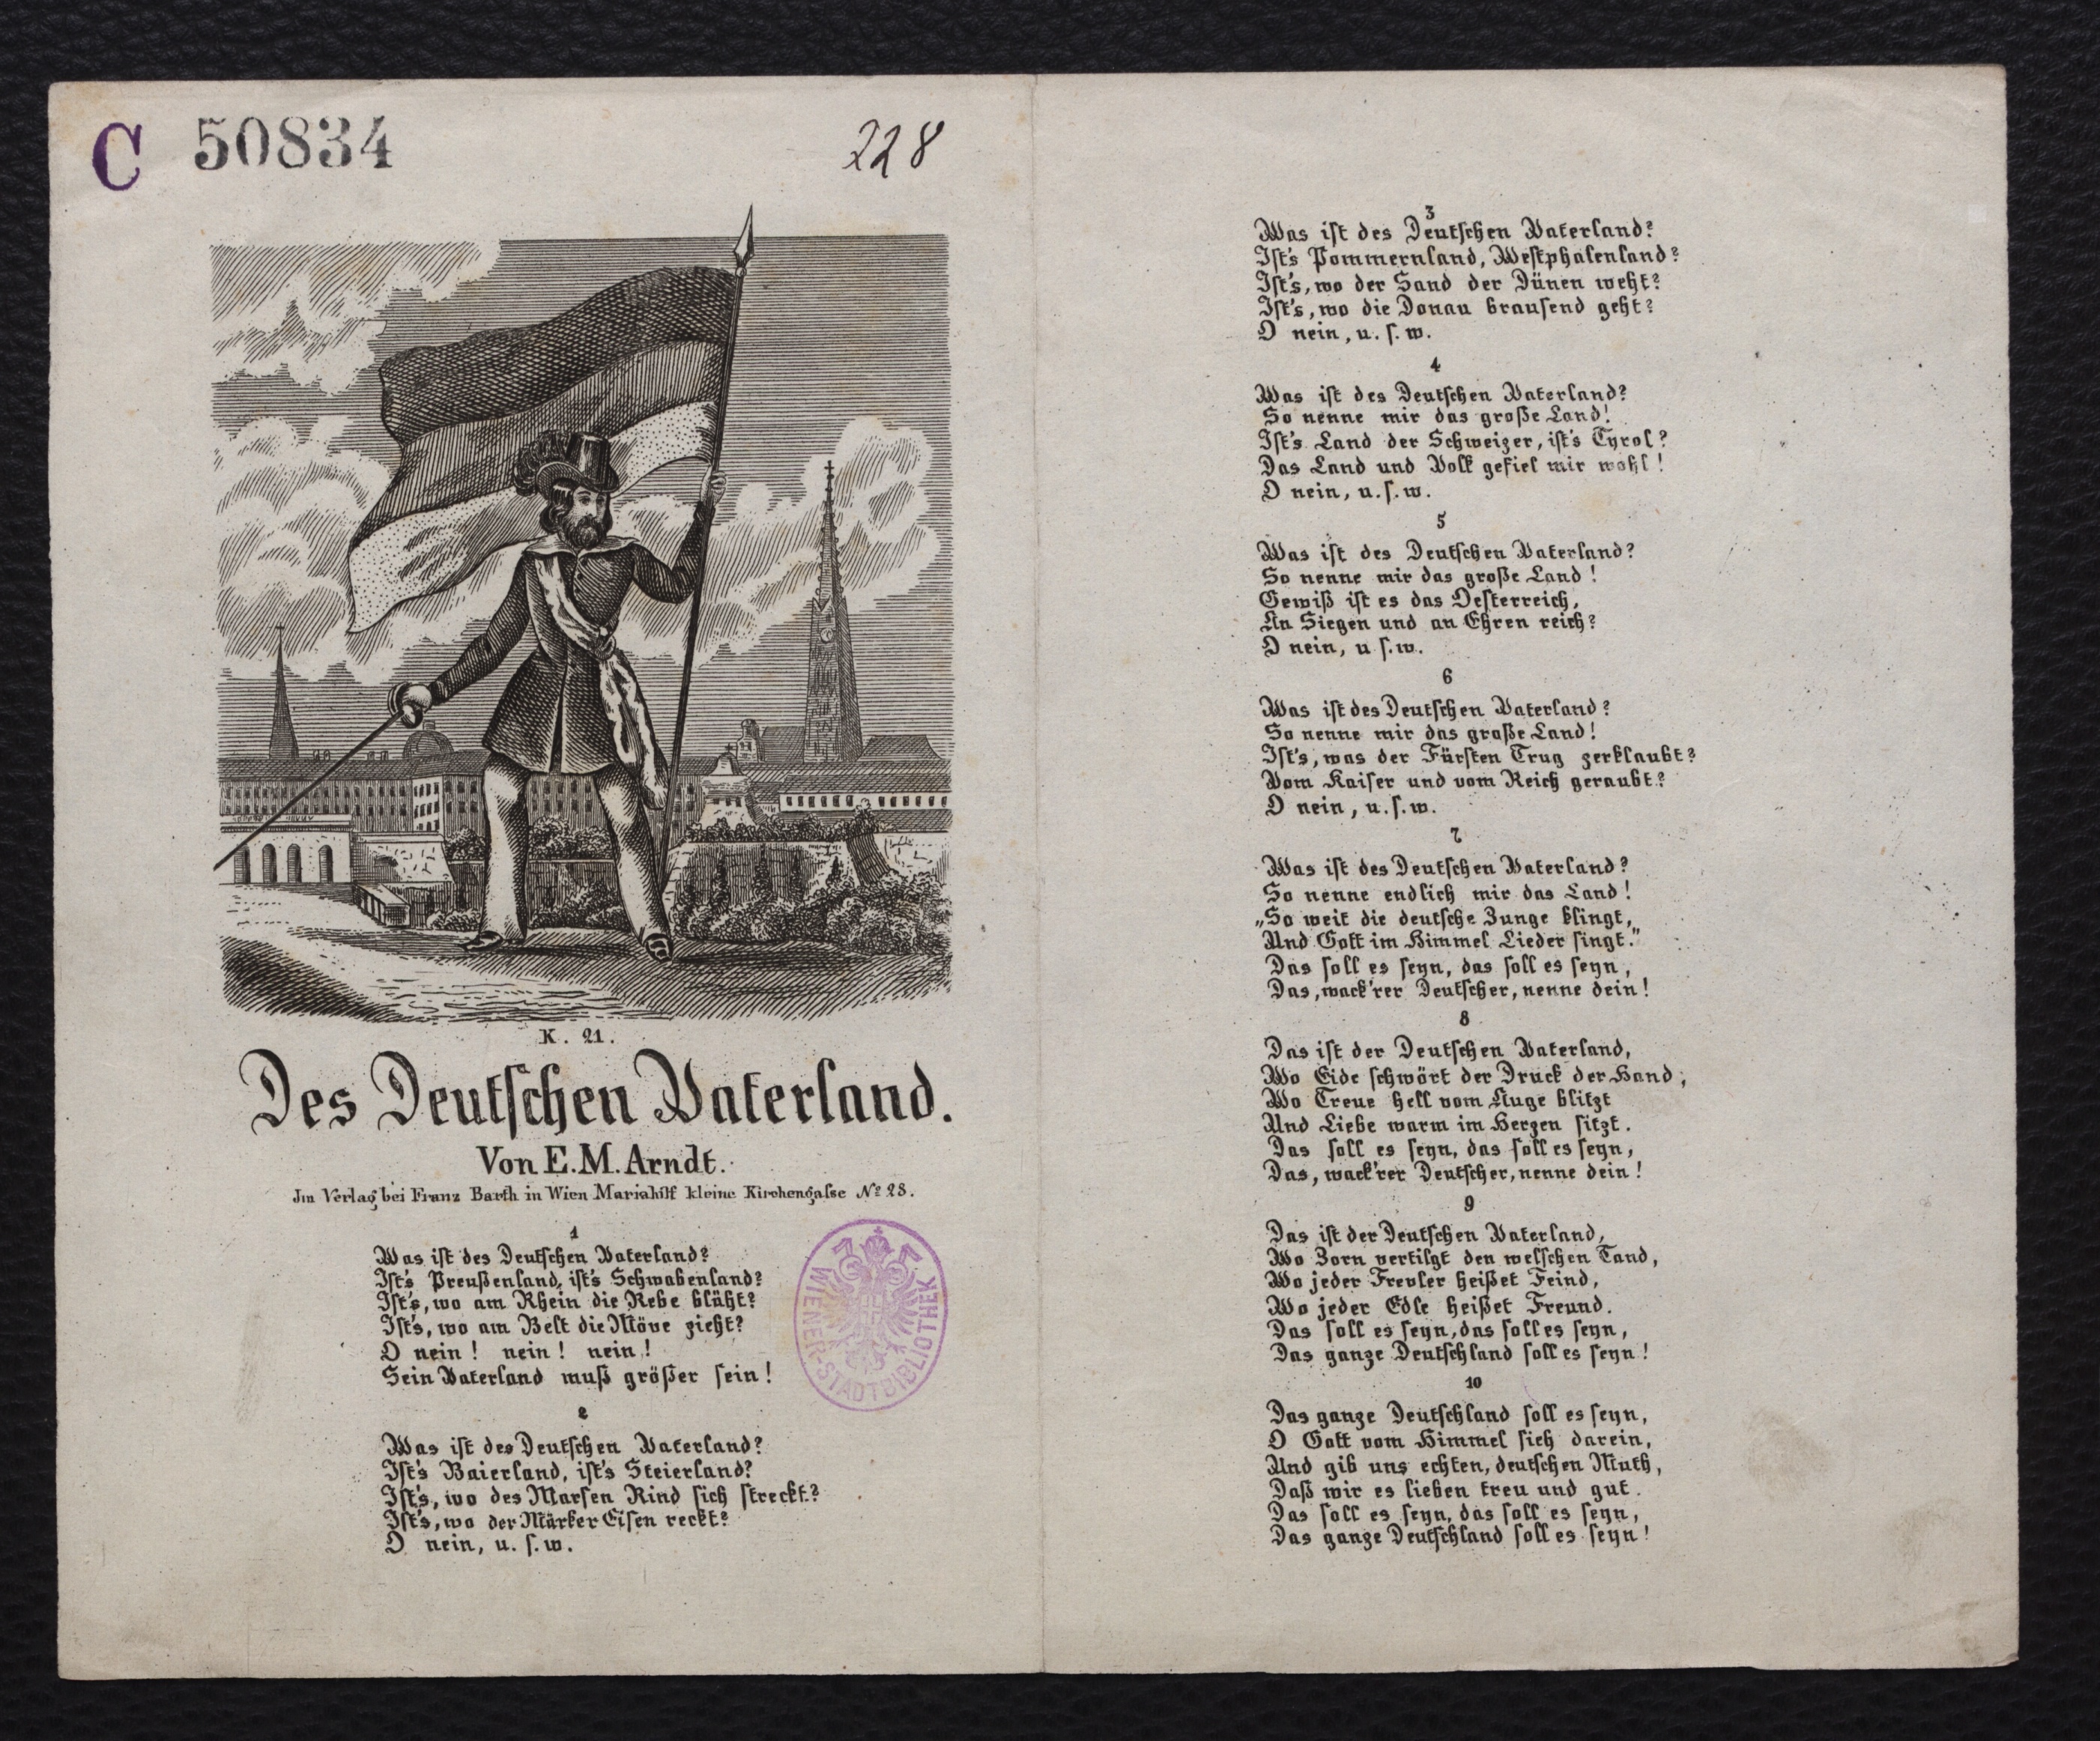 C 50834
228
K. 21.
Des Deutſchen Vaterland.
Von E. M. Arndt.
Im Verlag bei Franz Barth in Wien Mariahilf kleine Kirchengaſse Nº 28.
1
Was iſt des Deutſchen Vaterland?
Iſt's Preußenland, iſt's Schwabenland?
Iſt's, wo am Rhein die Rebe blüht?
Iſt's, wo am Belt die Möve zieht?
O nein! nein! nein!
Sein Vaterland muß größer ſein!
2
Was iſt des Deutſchen Vaterland?
Iſt's Baierland, iſt's Steierland?
Iſt's, wo des Marſen Rind ſich ſtreckt?
Iſt's, wo der Märker Eiſen reckt?
O nein, u. ſ. w.
WIENER-STADTBIBLIOTHEK
3
Was iſt des Deutſchen Vaterland?
Iſt's Pommernland, Weſtphalenland?
Iſt's, wo der Sand der Dünen weht?
Iſt's, wo die Donau brauſend geht?
O nein, u. ſ. w.
4
Was iſt des Deutſchen Vaterland?
So nenne mir das große Land!
Iſt's Land der Schweizer, iſt's Tyrol?
Das Land und Volk gefiel mir wohl!
O nein, u. ſ. w.
5
Was iſt des Deutſchen Vaterland?
So nenne mir das große Land!
Gewiß iſt es das Oeſterreich,
An Siegen und an Ehren reich?
O nein, u ſ. w.
6
Was iſt des Deutſchen Vaterland?
So nenne mir das große Land!
Iſt's, was der Fürſten Trug zerklaubt?
Vom Kaiſer und vom Reich geraubt?
O nein, u. ſ. w.
7
Was iſt des Deutſchen Vaterland?
So nenne endlich mir das Land!
„So weit die deutſche Zunge klingt,
Und Gott im Himmel Lieder ſingt."
Das ſoll es ſeyn, das ſoll es ſeyn,
Das, wack'rer Deutſcher, nenne dein!
8
Das iſt der Deutſchen Vaterland,
Wo Eide ſchwört der Druck der Hand,
Wo Treue hell vom Auge blitzt
Und Liebe warm im Herzen ſitzt.
Das ſoll es ſeyn, das ſoll es ſeyn,
Das, wack'rer Deutſcher, nenne dein!
9
Das iſt der Deutſchen Vaterland,
Wo Zorn vertilgt den welſchen Tand,
Wo jeder Frevler heißet Feind,
Wo jeder Edle heißet Freund.
Das ſoll es ſeyn, das ſoll es ſeyn,
Das ganze Deutſchland ſoll es ſeyn!
10
Das ganze Deutſchland ſoll es ſeyn,
O Gott vom Himmel ſieh darein,
Und gib uns echten, deutſchen Muth,
Daß wir es lieben treu und gut.
Das ſoll es ſeyn, das ſoll es ſeyn,
Das ganze Deutſchland ſoll es ſeyn!